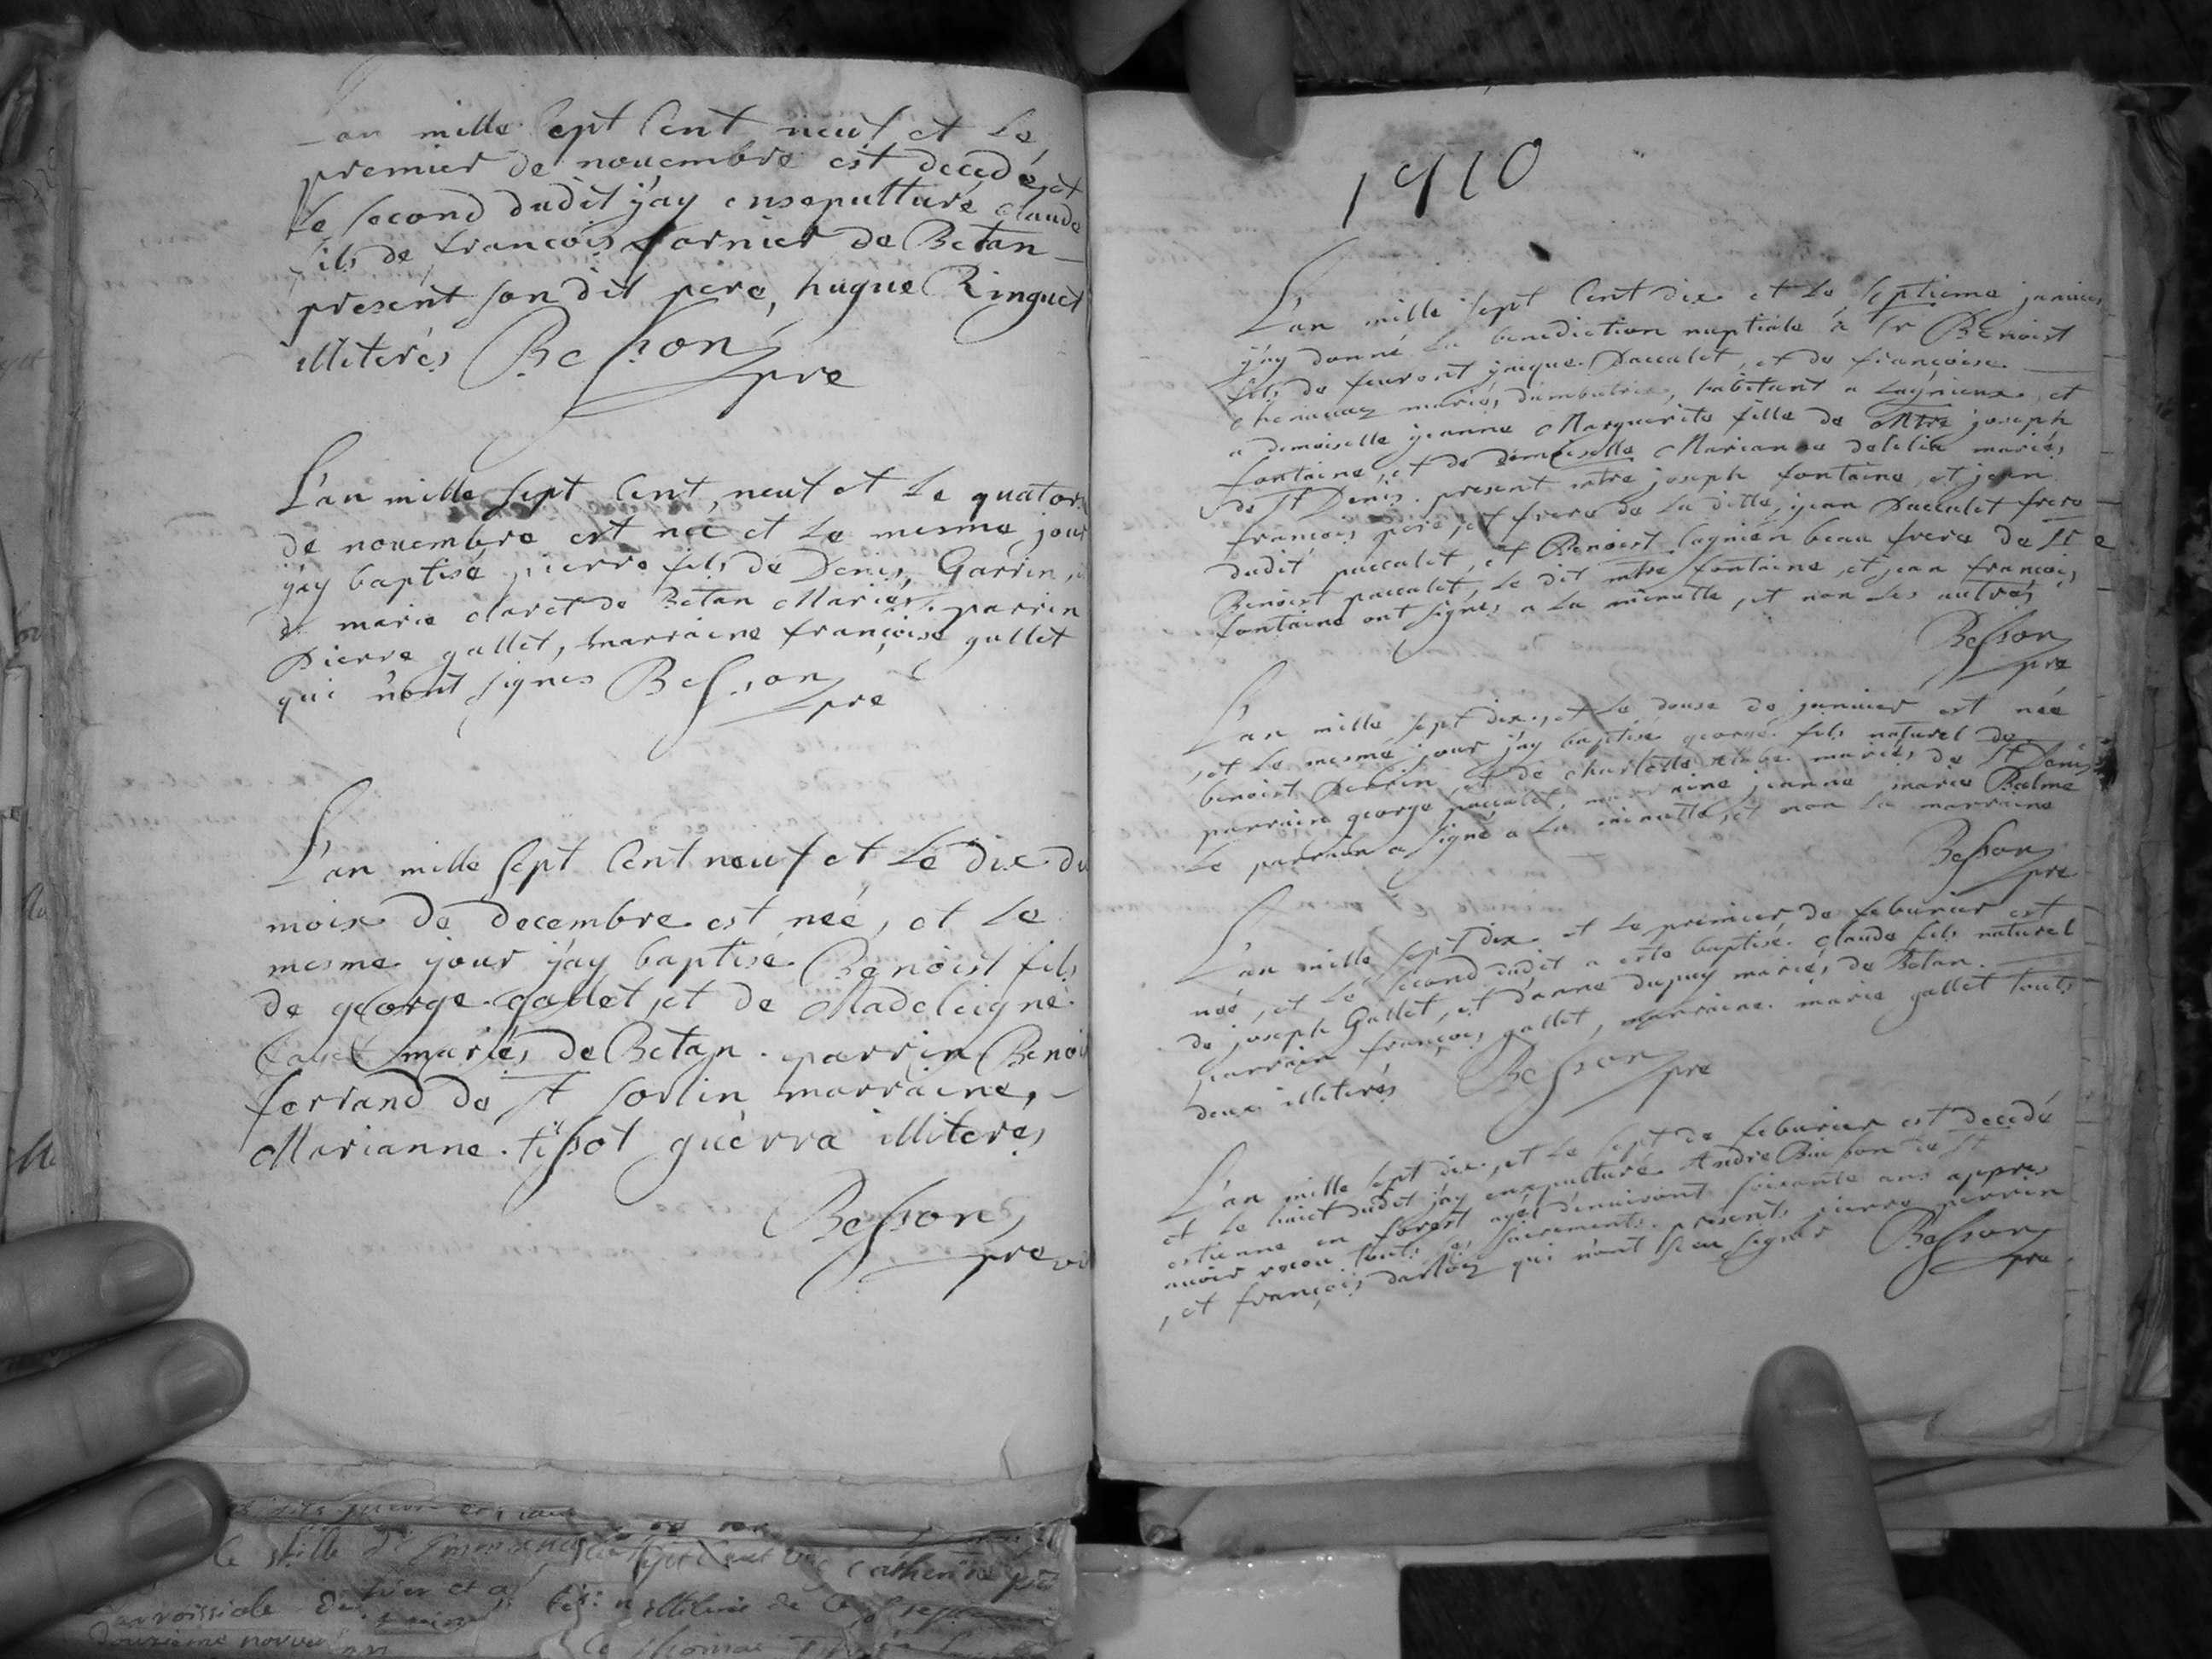 L'an mille sept cent neuf et le
premier de novembre est decedé, et
le second dudit j'ay ensepulturé claude
fils de francois fornier de Betan
present son dit pere, hugue Ringuet
illiterés Besson pre
L'an mille sept cent neuf et le quator
de novembre est né et le mesme jour
j'ay baptisé pierre fils de Denis Garrin
de marie claret de Betan Mariés. parrin
pierre gallet, marraine françoise gallet
qui n'ont signés Besson pre
L'an mille sept cent neuf et le dix du
mois de decembre est neé, et le
mesme jour j'ay baptisé Benoist fils
de george gallet, et de Madeleigne
mariés de Betan. parrin Benoi
ferrand de st sorlin marraine,
Marianne tissot guerra illiteres
Besson
pre
1710
L'an mille sept cent dix et le septieme janvier
j'ay donné la benediction nuptiale a sr Benoist
fils de feu Paccalet, et de françoise
mariés d'ambutrix, habitant a Lagnieux, et
a demoiselle jeanne Marguerite fille de Mtre joseph
fontaine, et de demoiselle Marianne mariés
de st Denis. present mtre joseph fontaine, et jean
francois pere, et frere de la ditte, jean Paccalet frere
dudit paccalet, et Benoist beau frere de sr
Benoist paccalet, le dit mtre fontaine, et jean francois
fontaine ont signés a la minutte, et non les autres
Besson
pre
L'an mille sept dix, et le douse de janvier est née
, et le mesme jour j'ay baptisé george fils naturel de
benoist Perrin, et de charlotte mariés de st Denis
parrain george paccalet, marraine jeanne marie Balme
le parrain a signé a la minutte, et non la marraine
Besson
pre
L'an mille sept dix et le premier de feburier est
neé, et le second dudit a esté baptisé claude fils naturel
de joseph Gallet, et d'anne dupuy mariés de Betan.
parrain françois gallet, marraine marie gallet touts
deux illiterés Besson pre
L'an mille sept dix, et le sept de feburier est decedé
et le huict dudit j'ay ensepulturé Andre Buisson de st
estienne en forest agé d'environt soixante ans appres
avoir receu touts les sacrements. presents pierre perrin
, et françois qui n'ont sceu signer Besson
pre